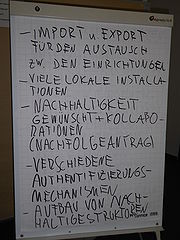 - IMPORT U EXPORT
FÜR DEN AUSTAUSCH
ZW. DEN EINRICHTUNGEN
- VIELE LOKALE INSTALLA
TIONEN
- NACHHALTIGKEIT
GEWÜNSCHT + KOLLABO-
RATIONEN
(NACHFOLGEANTRAG)
- VERSCHIEDENE
AUTHENTIFIZIERUNGS-
MECHANISMEN
- AUFBAU VON NACH-
HALTIGESTRUKTUREN